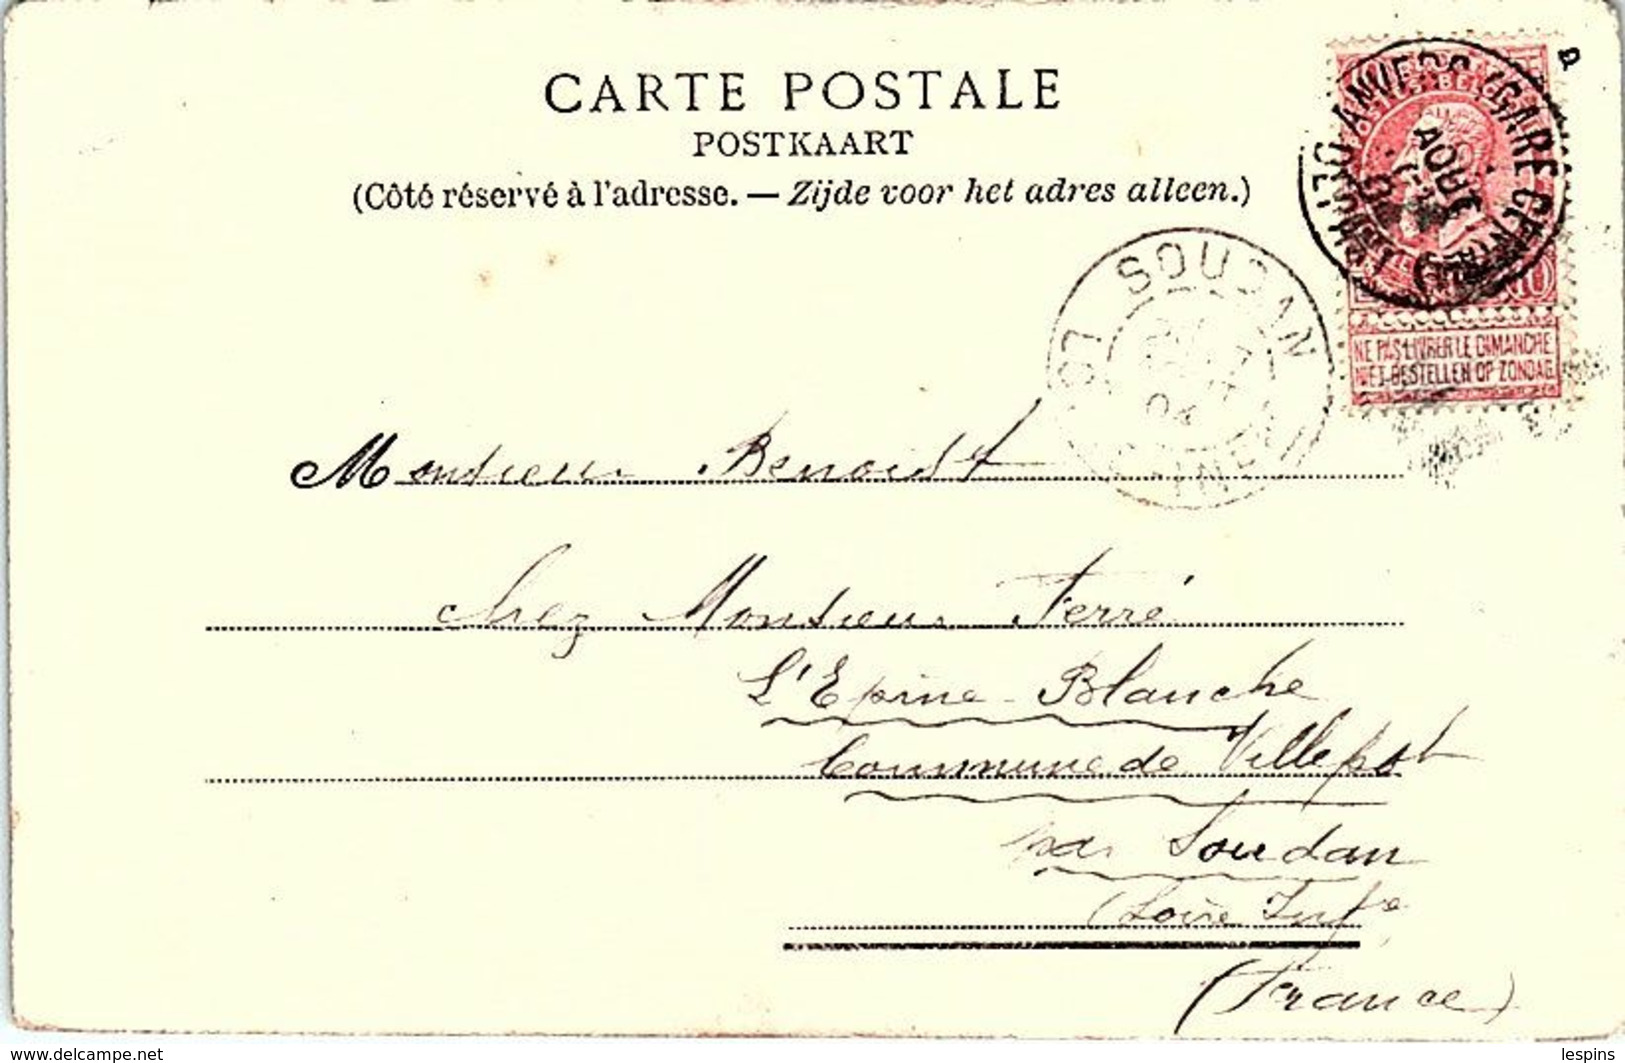 CARTE POSTALE
POSTKAART
(Côté réservé à l'adresse. — Zijde voor het adres alleen.)
ANVERS (GARE CENTRALE)
AOÛT
10
NE PAS LIVRER LE DIMANCHE
NIET BESTELLEN OP ZONDAG
SOUDAN
04
Monsieur Benoist
Chez Monsieur Ferré
L'Epine-Blanche
Commune de Villepot
par Soudan
(Loire Infre
(France)
www.delcampe.net
lespins